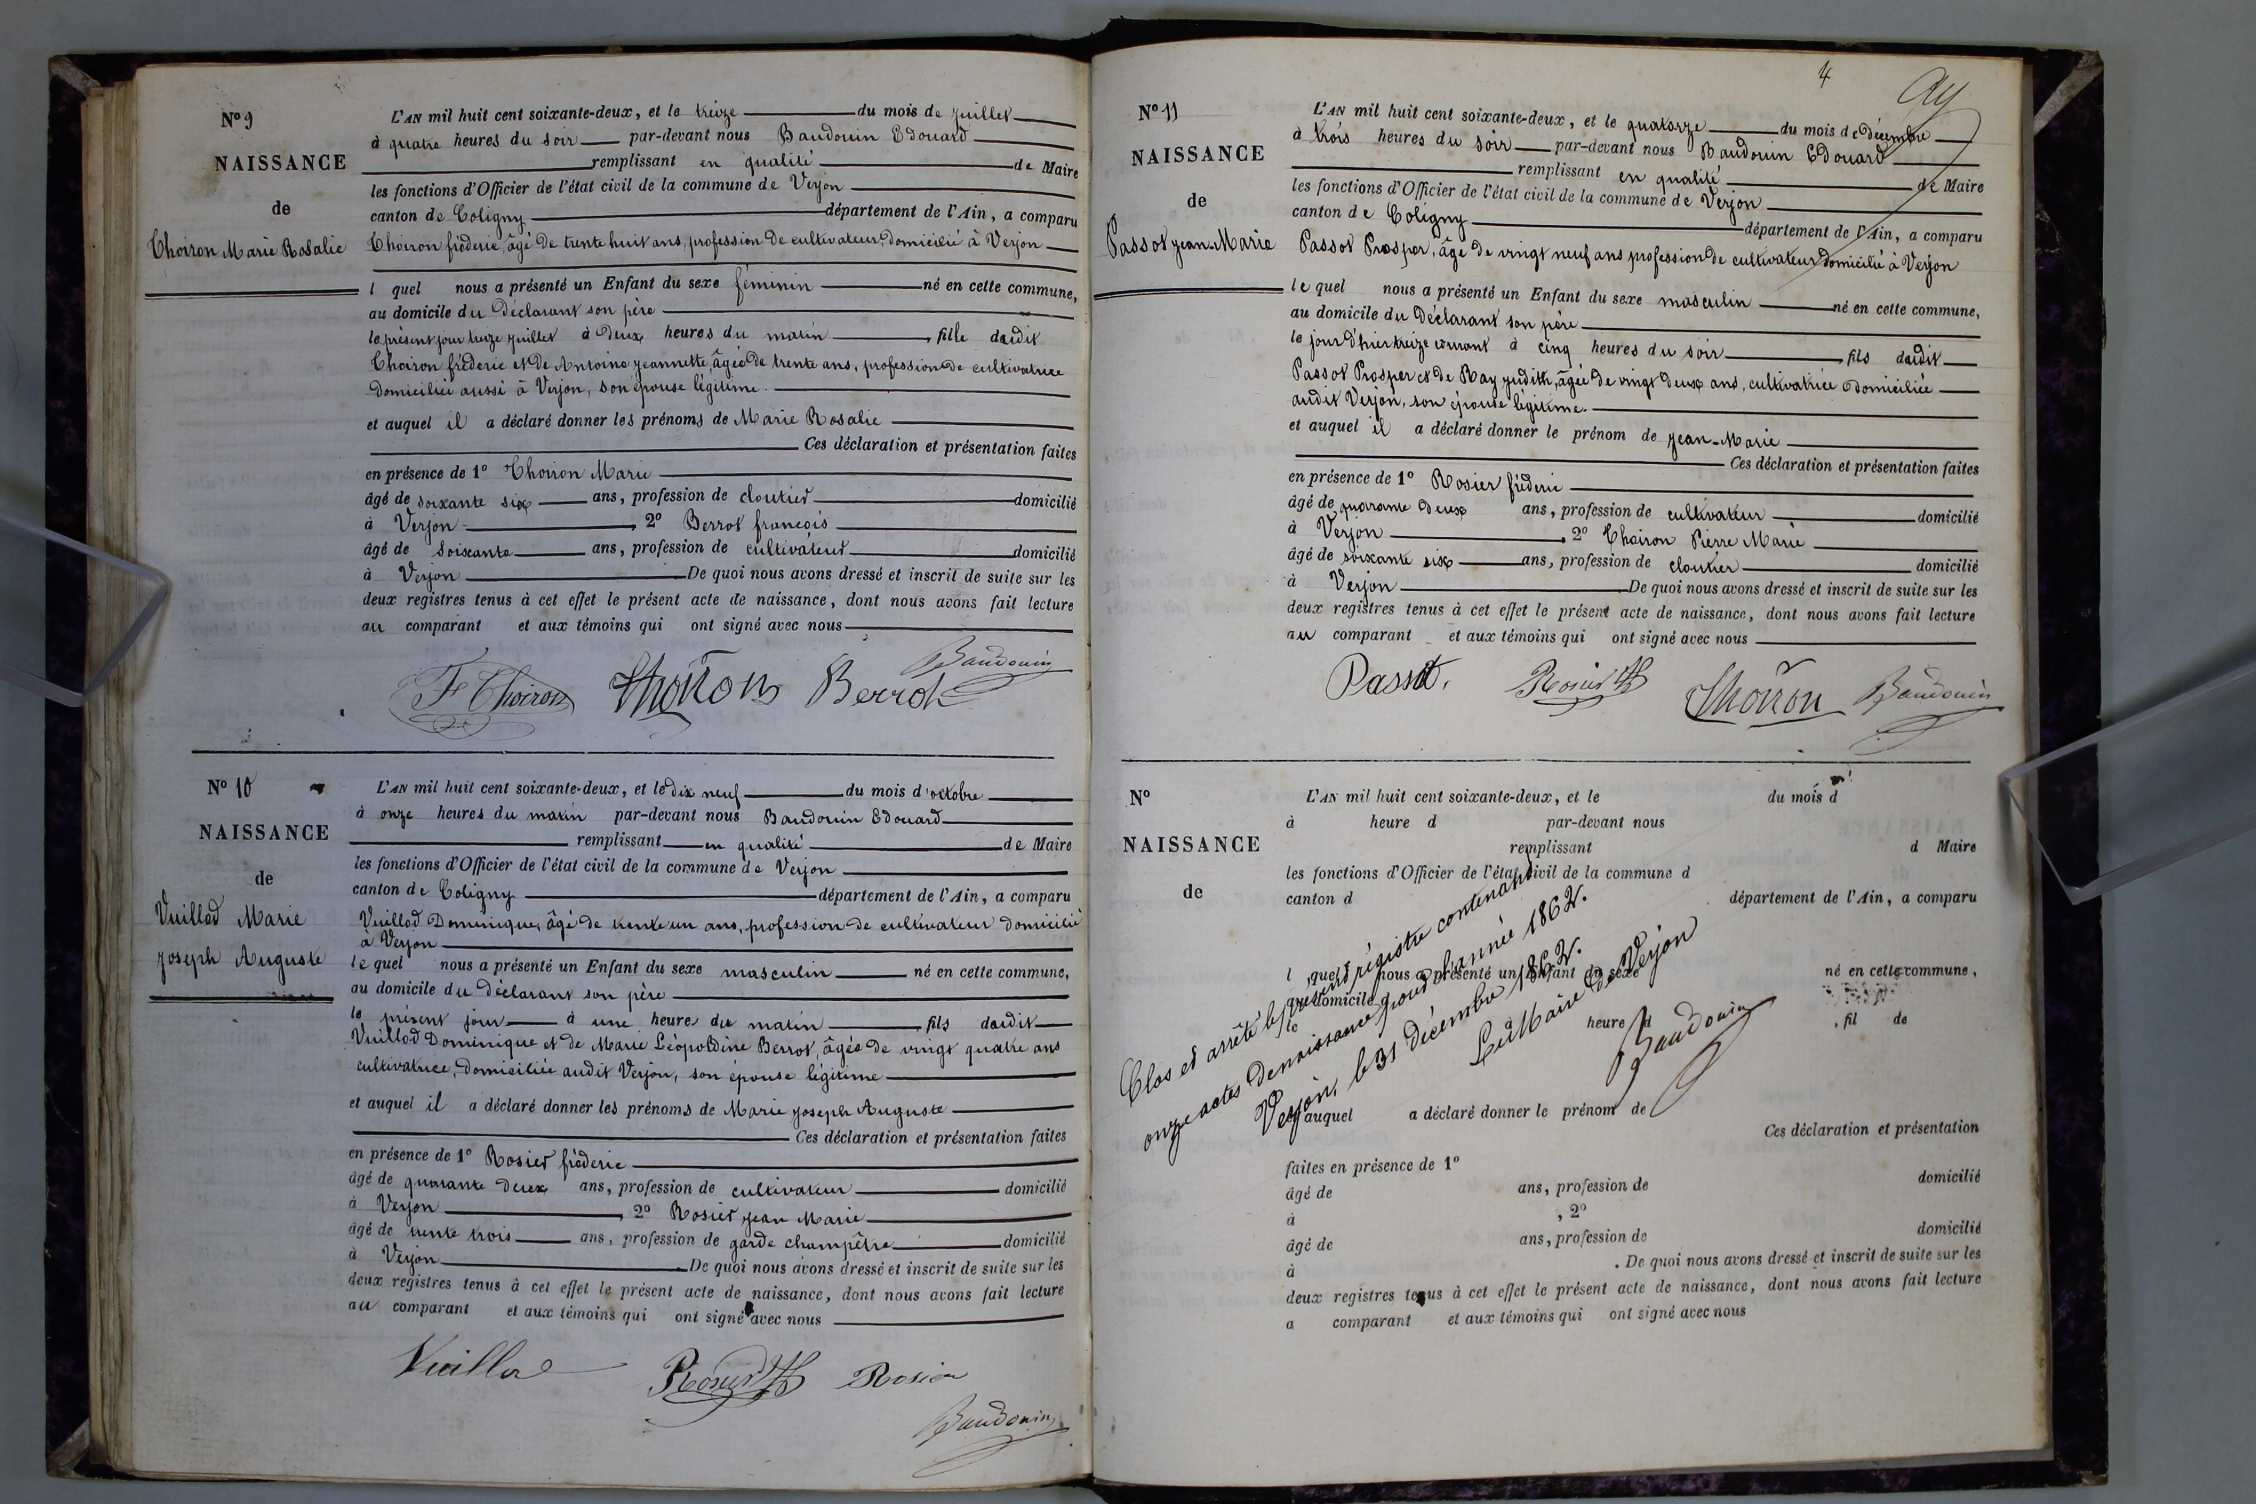 N° 9
NAISSANCE
de
Thoiron Marie Rosalie
L'AN mil huit cent soixante-deux, et le treize du mois de juillet
à quatre heures du soir par-devant nous Baudouin Edouard
remplissant en qualité de Maire
les fonctions d'Officier de l'état civil de la commune de Verjon
canton de Coligny département de l'Ain, a comparu
Thoiron fréderic, âgé de trente huit ans, profession de cultivateur, domicilié à Verjon
l quel nous a présenté un Enfant du sexe féminin né en cette commune,
au domicile du Déclarant son père
le présent jour treize juillet à deux heures du matin, fille dudit
Thoiron fréderic et de Antoine jeannette, âgée de trente ans, profession de cultivatrice
domiciliée aussi à Verjon, son épouse légitime.
et auquel il a déclaré donner les prénoms de Marie Rosalie
Ces déclaration et présentation faites
en présence de 1° Thoiron Marie
âgé de soixante six ans, profession de cloutier domicilié
à Verjon, 2° Berrot françois
âgé de soixante ans, profession de cultivateur domicilié
à Verjon De quoi nous avons dressé et inscrit de suite sur les
deux registres tenus à cet effet le présent acte de naissance, dont nous avons fait lecture
au comparant et aux témoins qui ont signé avec nous
F Thoiron Thoiron Berrot Baudouin
N° 10
NAISSANCE
de
Vuillod Marie
joseph Auguste
L'AN mil huit cent soixante-deux, et le dix neuf du mois d'octobre
à onze heures du matin par-devant nous Baudouin Edouard
remplissant en qualité de Maire
les fonctions d'Officier de l'état civil de la commune de Verjon
canton de Coligny département de l'Ain, a comparu
Vuillod Dominique, âgé de trente un ans, profession de cultivateur domicilié
à Verjon
le quel nous a présenté un Enfant du sexe masculin né en cette commune,
au domicile du déclarant son père
le présent jour à une heure du matin fils dudit
Vuillod Dominique et de Marie Léopoldine Berrot, âgée de vingt quatre ans
cultivatrice, domiciliée audit Verjon, son épouse légitime
et auquel il a déclaré donner les prénoms de Marie joseph Auguste
Ces déclaration et présentation faites
en présence de 1° Rosier fréderic
âgé de quarante deux ans, profession de cultivateur domicilié
à Verjon, 2° Rosier jean Marie
âgé de trente trois ans, profession de garde champêtre domicilié
à Verjon De quoi nous avons dressé et inscrit de suite sur les
deux registres tenus à cet effet le présent acte de naissance, dont nous avons fait lecture
au comparant et aux témoins qui ont signé avec nous
Vuillod Rosier Rosier
Baudouin
4
N° 11
NAISSANCE
de
Passot jean-Marie
L'AN mil huit cent soixante-deux, et le quatorze du mois de décembre
à trois heures du soir par-devant nous Baudouin Edouard
remplissant en qualité de Maire
les fonctions d'Officier de l'état civil de la commune de Verjon
canton de Coligny département de l'Ain, a comparu
Passot Prosper, âgé de vingt neuf ans profession de cultivateur domicilié à Verjon
le quel nous a présenté un Enfant du sexe masculin né en cette commune,
au domicile du Déclarant son père
le jour d'hier treize courant à cinq heures du soir, fils dudit
Passot Prosper et de Ray judith, âgée de vingt deux ans, cultivatrice domiciliée
audit Verjon, son épouse légitime.
et auquel il a déclaré donner le prénom de jean-Marie
Ces déclaration et présentation faites
en présence de 1° Rosier fréderic
âgé de quarante deux ans, profession de cultivateur domicilié
à Verjon, 2° Thoiron Pierre Marie
âgé de soixante six ans, profession de cloutier domicilié
à Verjon De quoi nous avons dressé et inscrit de suite sur les
deux registres tenus à cet effet le présent acte de naissance, dont nous avons fait lecture
au comparant et aux témoins qui ont signé avec nous
Passot. Rosier Thoiron Baudouin
N°
NAISSANCE
de
L'AN mil huit cent soixante-deux, et le du mois d
à heure d par-devant nous
remplissant d Maire
les fonctions d'Officier de l'état civil de la commune d
canton d département de l'Ain, a comparu
l quel nous a présenté un Enfant du sexe né en cette commune,
au domicile d
le à heure d, fil de
et auquel a déclaré donner le prénom de
Ces déclaration et présentation
faites en présence de 1°
âgé de ans, profession de domicilié
à, 2°
âgé de ans, profession de domicilié
à. De quoi nous avons dressé et inscrit de suite sur les
deux registres tenus à cet effet le présent acte de naissance, dont nous avons fait lecture
a comparant et aux témoins qui ont signé avec nous
Clos et arrêté le présent régistre contenant
onze actes de naissance pour l'année 1862.
Verjon, le 31 décembre 1862.
Le Maire de Verjon
Baudouin